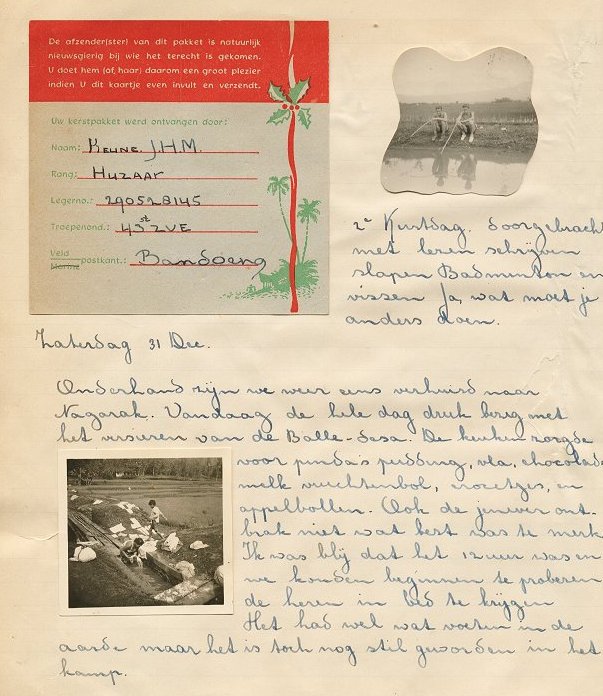 De afzender(ster) van dit pakket is natuurlijk
nieuwsgierig bij wie het terecht is gekomen.
U doet hem (of, haar) daarom een groot plezier
indien U dit kaartje even invult en verzendt.
Uw kerstpakket werd ontvangen door:
Naam: KEUNE. J.H.M.
Rang: HUZAAR
Legerno.: 290528145
Troepenond.: 43ste ZVE
Veld
Marine postkant.: Bandoeng
2e Kerstdag. doorgebracht
met lezen schrijven
slapen Badminton en
vissen Ja, wat moet je
anders doen.
Zaterdag 31 Dec.
Onderhand zijn we weer eens verhuisd naar
Nagarak. Vandaag de hele dag druk bezig met
het versieren van de Balle-desa. De keuken zorgde
voor pinda's pudding, vla, chocolade
melk vruchtenbol, en
appelbollen. Ook de jenever ont-
brak niet wat best was te merk
Ik was blij dat het 12 uur was en
we konden beginnen te proberen
de heren in bed te krijgen
Het had wel wat voeten in de
aarde maar het is toch nog stil geworden in het
kamp.